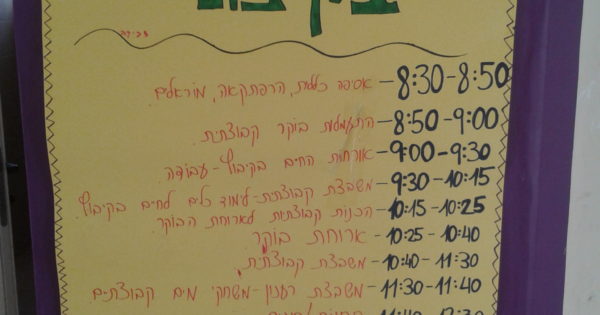 8:30-8:50 - אסיפה כללית, הרפתקאה, מוראלים.
8:50-9:00 - התעמלות בוקר קבוצתית.
9:00-9:30 - אורחות החיים בקיבוץ-עבודה.
9:30-10:15 - משבצת קבוצתית-לימוד כלים לחיים בקיבוץ.
10:15-10:25 - הכנות קבוצתית לארוחת הבוקר.
10:25-10:40 - ארוחת בוקר.
10:40-11:30 - משבצת קבוצתית.
11:30-11:40 - משבצת רענון-משחקי מים קבוצתים.